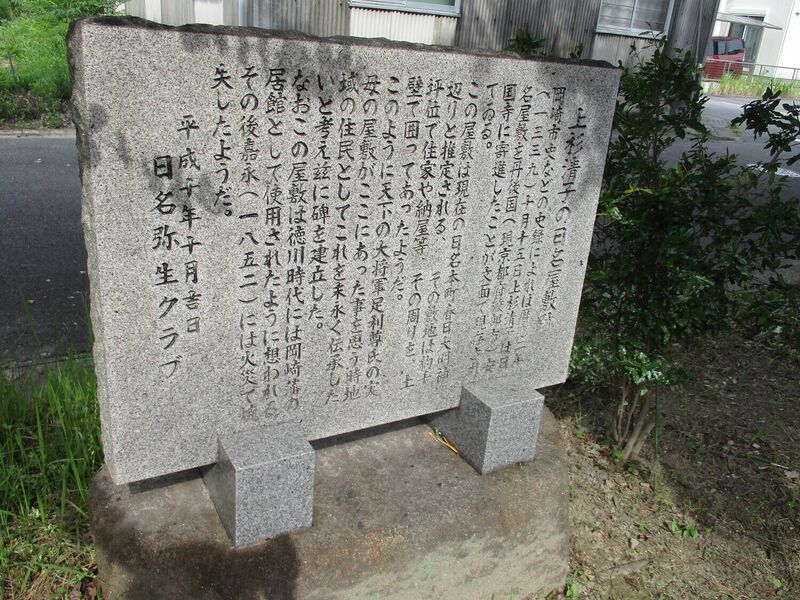 上杉清子の日名屋敷跡
岡崎市史などの史録によれば暦応二年
(一三三九)十月十五日上杉清子は日
名屋敷を丹後国(現京都府
国寺に寄進したことが
てゐる。
この屋敷は現在の日名本町春日大明神
辺りと推定される、その敷地は約千
坪位で住家や納屋等、その周りを、土
壁で囲ってあったようだ。
このように天下の大将軍足利尊氏の実
母の屋敷がここにあった事を思う時地
域の住民としてこれを末永く伝承した
いと考え玆に碑を建立した。
なおこの屋敷は徳川時代には岡崎藩の
居館として使用されたように想われる
その後嘉永(一八五二)には火災で焼
失したようだ。
平成十年十月吉日
日名弥生クラブ